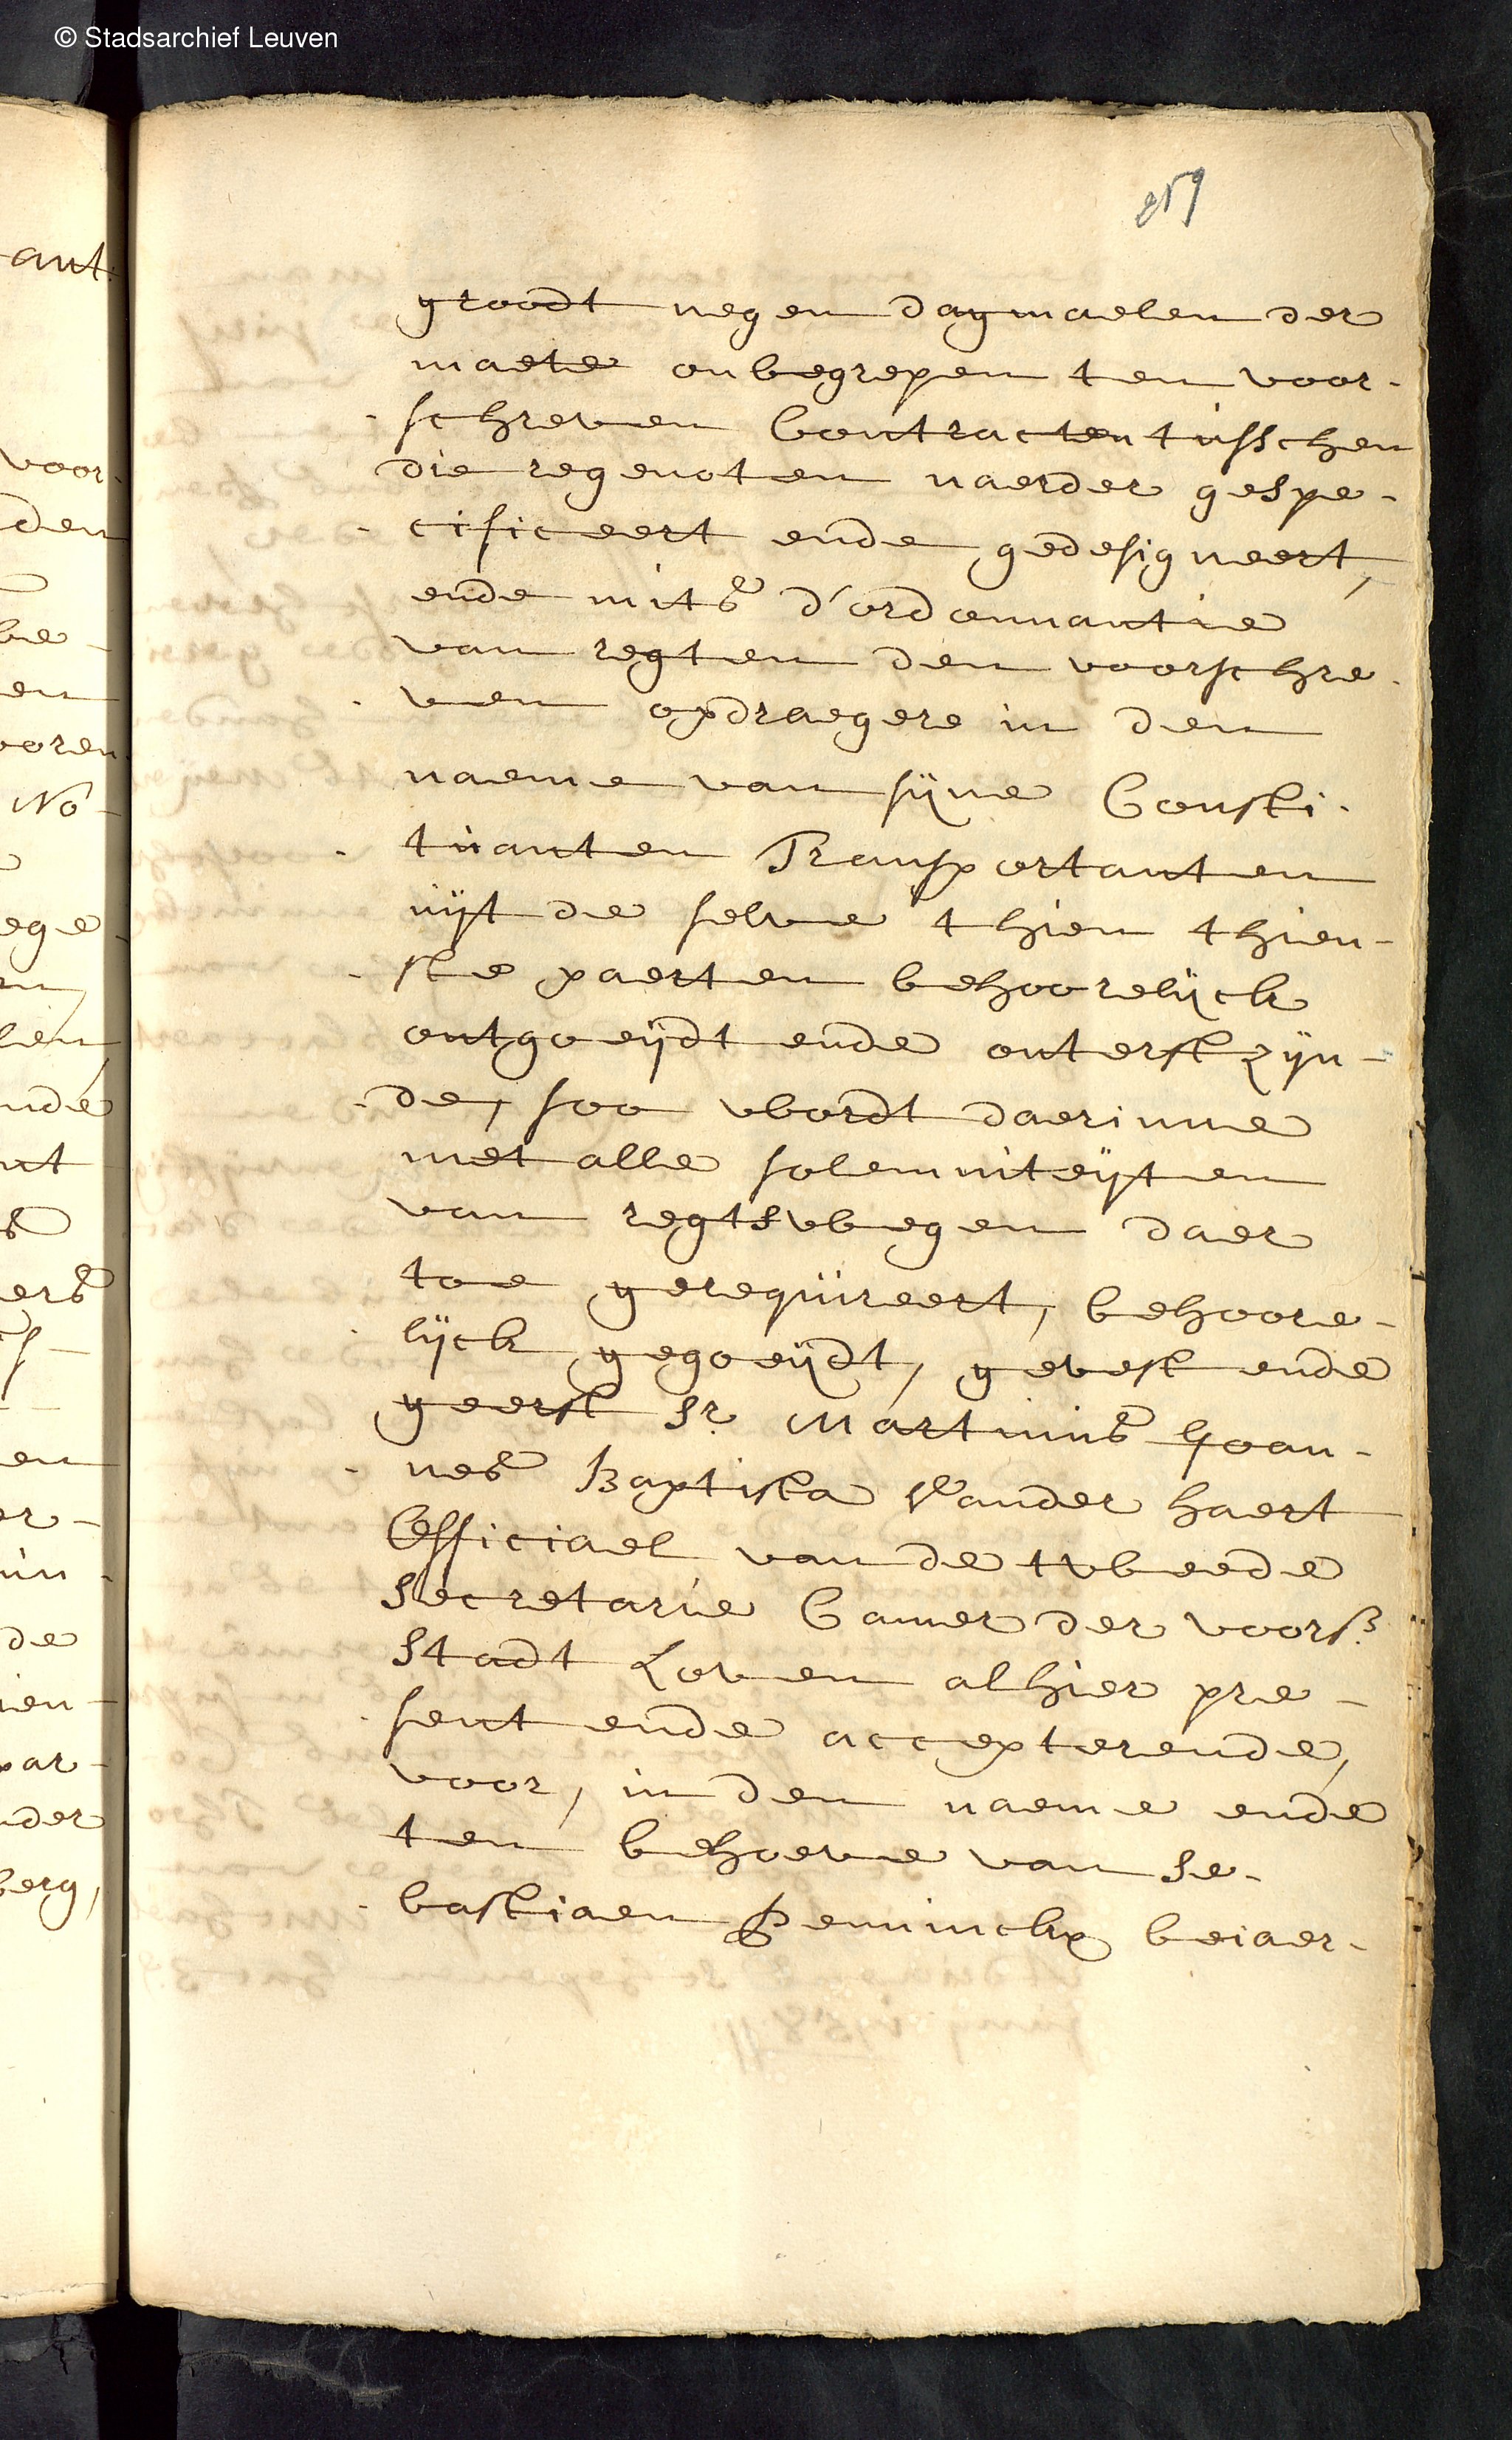 © Stadsarchief Leuven
groodt negen dagmaelen der
maete onbegrepen ten voor-
-schreven Contracten tusschen
die regenoten naerder gespe-
-cificeert ende gedesigneert,
ende mits d'ordonnantie
van regten den voorschre-
-ven opdraegere in den
naeme van sijne Consti-
-tuanten Transportanten
uijt de selve thien thien-
-ste paerten behoorelijck
ontgoeijdt ende onterft zijn-
-de, soo wordt daerinne
met alle solemniteijten
van regtswegen daer
toe gerequireert, behoore-
-lijck gegoeijdt, gevest ende
geerft Sr. Martinus Joan-
-nes Baptista Vander Haert
Officiael van de tweede
Secretarie Camer der voors.
Stadt Loven alhier pre-
-sent ende accepterende,
voor, in den naeme ende
ten behoeve van Se-
-bastiaen Penninckx beiaer-
ant.
voor-
den
be-
en
ooren
No-
ege-
en,
len,
nde
nt
ers
en
er-
un-
de
ien-
par-
nder
berg,